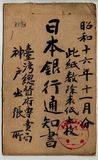 昭和十六年十一月分
此紙數除表紙 枚
日本銀行通知書
臺灣總督府專賣局
神戶出張所